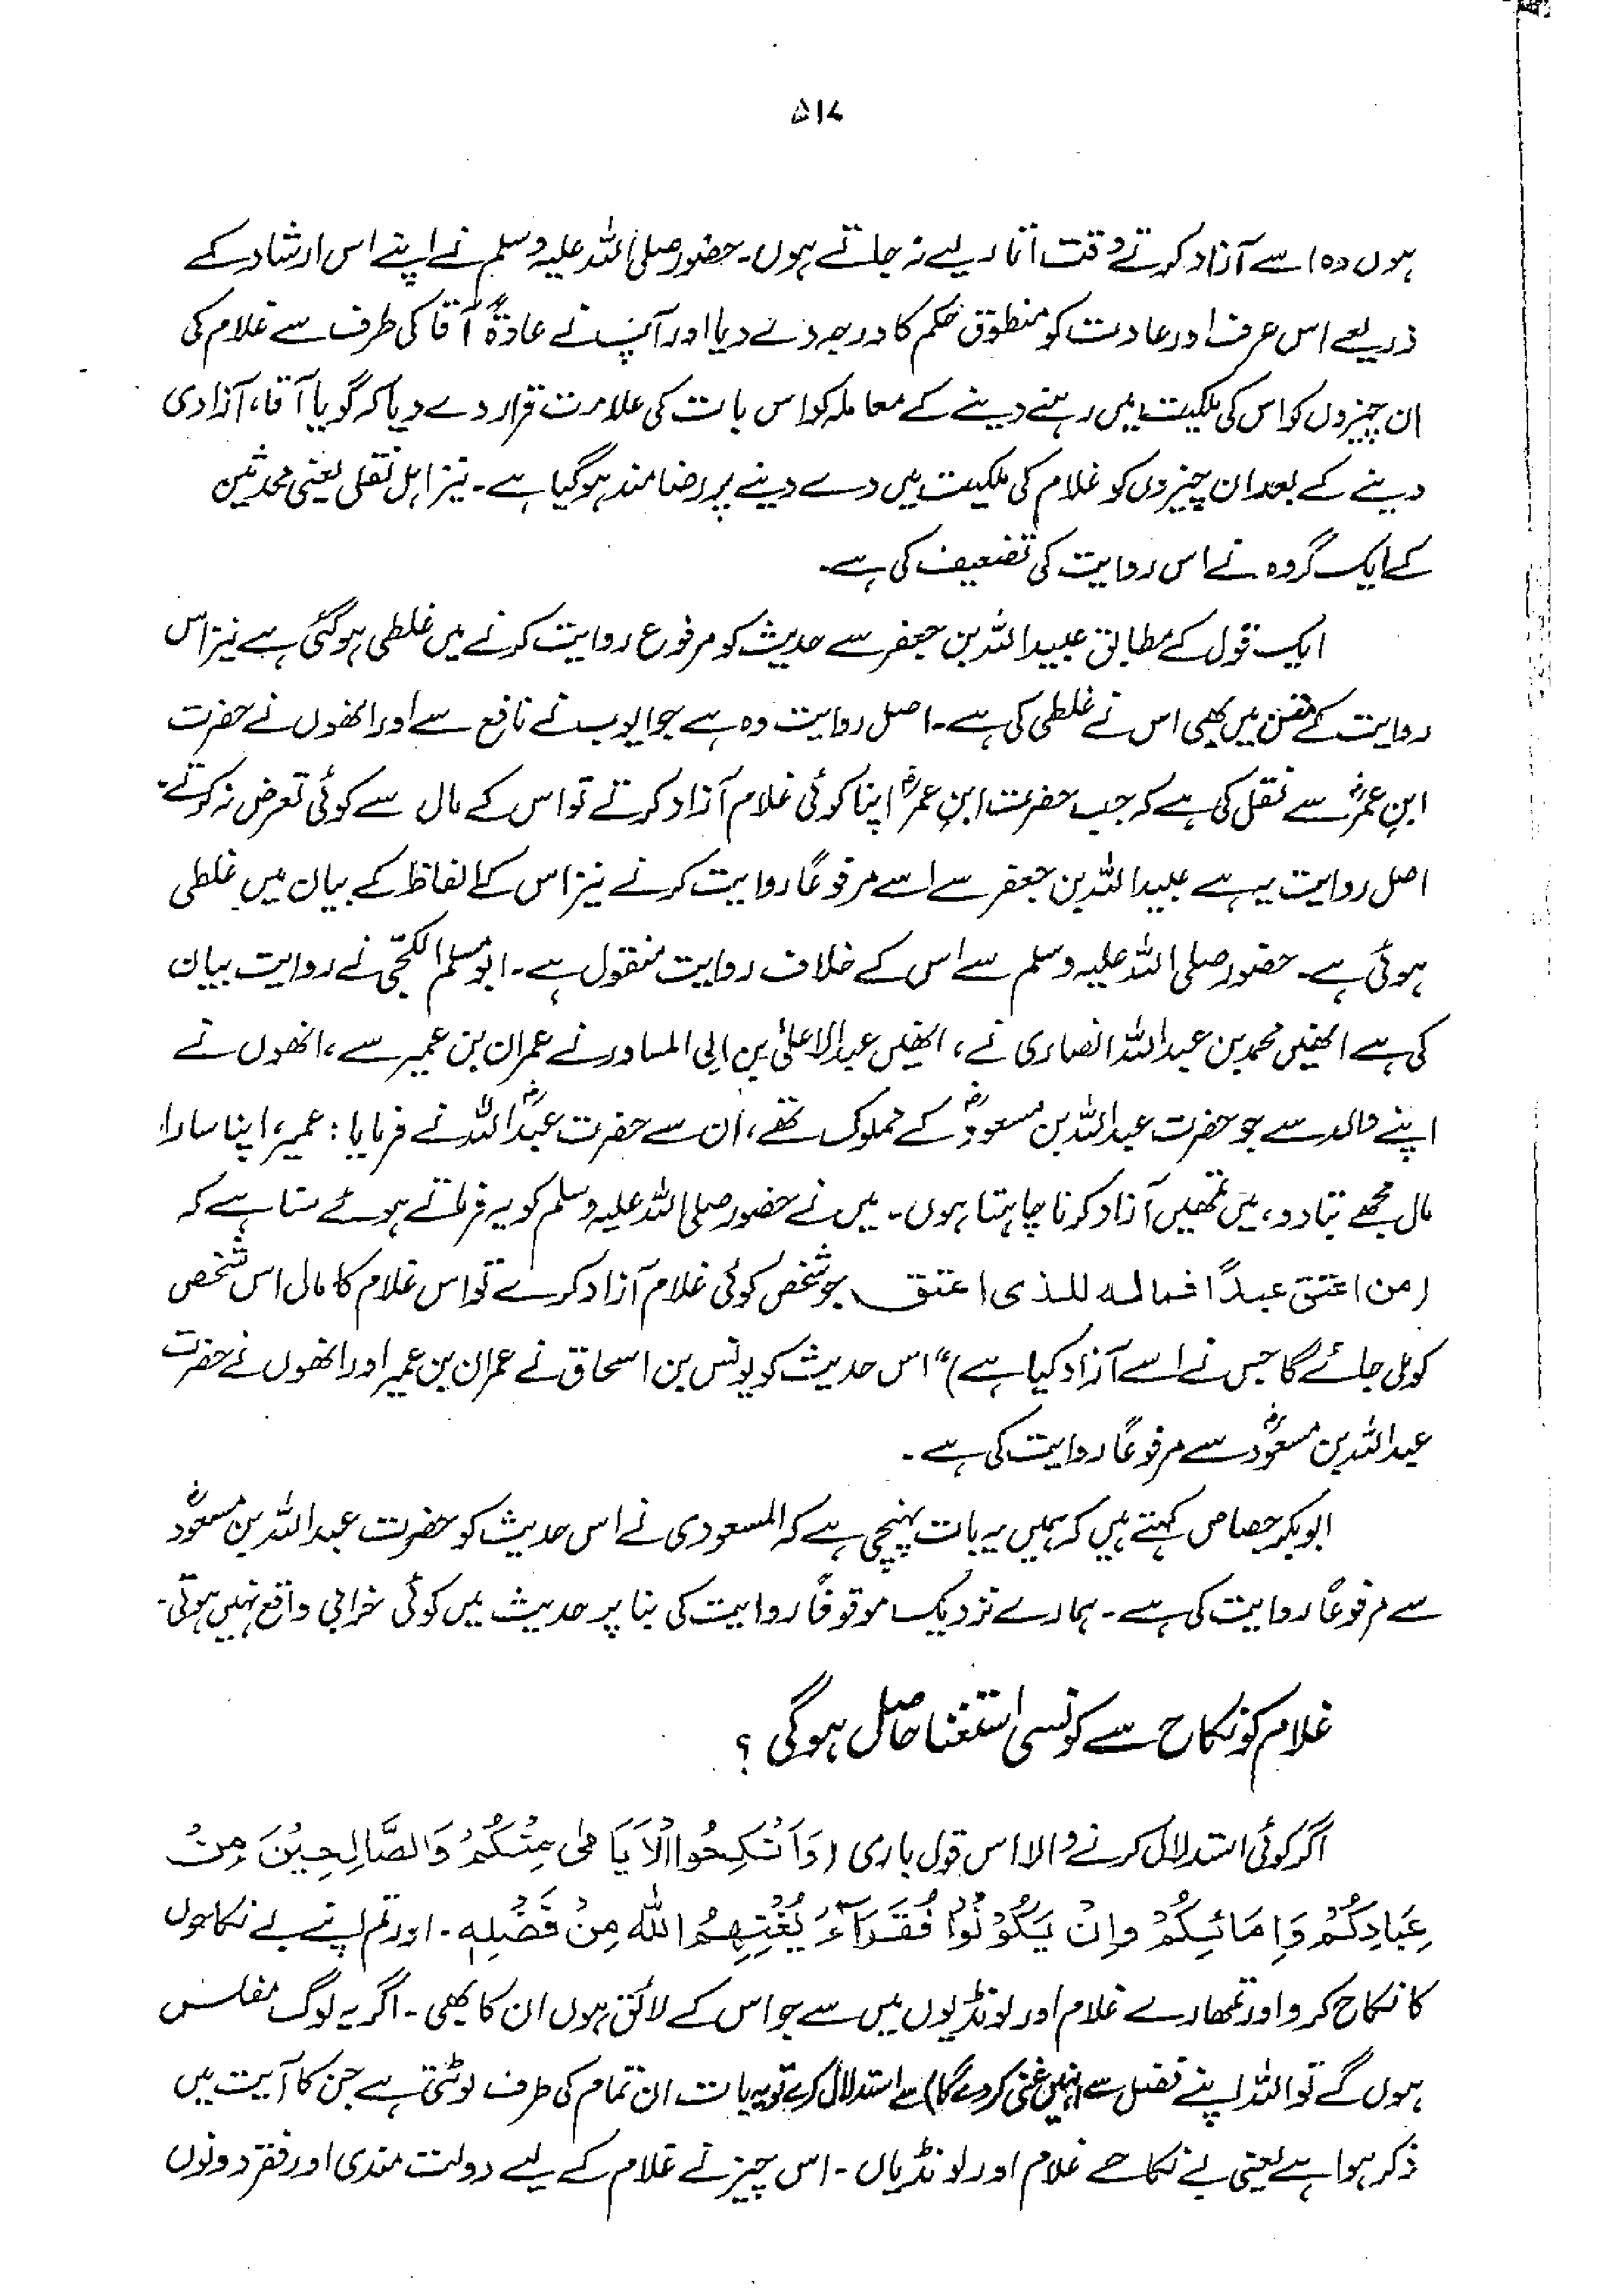 ۵۱۷
ہوں وہ اسے آزاد کرتے وقت اتار لیے نہ جاتے ہوں۔ حضور صلی اللہ علیہ وسلم نے اپنے اس ارشاد کے
ذریعے اس عرف اور عادت کو منطوق حکم کا درجہ دے دیا اور آپ نے عادۃً آقا کی طرف سے غلام کی
ان چیزوں کو اس کی ملکیت میں رہنے دینے کے معاملہ کو اس بات کی علامت قرار دے دیا کہ گویا آقا، آزادی
دینے کے بعد ان چیزوں کو غلام کی ملکیت میں دے دینے پر رضامند ہوگیا ہے۔ نیز اہل نقل یعنی محدثین
کے ایک گروہ نے اس روایت کی تضعیف کی ہے۔
ایک قول کے مطابق عبیداللہ بن جعفر سے حدیث کو مرفوع روایت کرنے میں غلطی ہوگئی ہے نیز اس
روایت کے متن میں بھی اس نے غلطی کی ہے۔ اصل روایت وہ ہے جو ایوب نے نافع سے اور انھوں نے حضرت
ابنِ عمرؓ سے نقل کی ہے کہ جب حضرت ابنِ عمرؓ اپنا کوئی غلام آزاد کرتے تو اس کے مال سے کوئی تعرض نہ کرتے۔
اصل روایت یہ ہے عبیداللہ بن جعفر سے اسے مرفوعًا روایت کرنے نیز اس کے الفاظ کے بیان میں غلطی
ہوئی ہے۔ حضور صلی اللہ علیہ وسلم سے اس کے خلاف روایت منقول ہے۔ ابو مسلم الکجّی نے روایت بیان
کی ہے انھیں محمد بن عبداللہ انصاری نے، انھیں عبدالاعلیٰ بن ابی المساور نے عمران بن عمیر سے، انھوں نے
اپنے والد سے جو حضرت عبداللہ بن مسعودؓ کے مملوک تھے، ان سے حضرت عبداللہؓ نے فرمایا : عمیر، اپنا سارا
مال مجھے بتا دو، میں تمھیں آزاد کرنا چاہتا ہوں۔ میں نے حضور صلی اللہ علیہ وسلم کو یہ فرماتے ہوئے سنا ہے کہ
(من اعتق عبدًا فماله للذی اعتق۔ جو شخص کوئی غلام آزاد کرے تو اس غلام کا مال اس شخص
کو مل جائے گا جس نے اسے آزاد کیا ہے)" اس حدیث کو یونس بن اسحاق نے عمران بن عمیر اور انھوں نے حضرت
عبداللہ بن مسعودؓ سے مرفوعًا روایت کی ہے۔
ابوبکر جصاص کہتے ہیں کہ ہمیں یہ بات پہنچی ہے کہ المسعودی نے اس حدیث کو حضرت عبداللہ بن مسعودؓ
سے مرفوعًا روایت کی ہے۔ ہمارے نزدیک موقوفًا روایت کی بنا پر حدیث میں کوئی خرابی واقع نہیں ہوتی۔
غلام کو نکاح سے کونسی استغنا حاصل ہوگی ؟
اگر کوئی استدلال کرنے والا اس قول باری (وَاَنْكِحُوا الْاَيَامٰى مِنْكُمْ وَالصَّالِحِيْنَ مِنْ
عِبَادِكُمْ وَاِمَائِكُمْ وَاِنْ يَكُوْنُوْا فُقَرَآءَ يُغْنِهِمُ اللّٰهُ مِنْ فَضْلِهٖ۔ اور تم اپنے بے نکاحوں
کا نکاح کرو اور تمھارے غلام اور لونڈیوں میں سے جو اس کے لائق ہوں ان کا بھی۔ اگر یہ لوگ مفلس
ہوں گے تو اللہ اپنے فضل سے انہیں غنی کردے گا) سے استدلال کرے تو یہ بات ان تمام کی طرف لوٹتی ہے جن کا آیت میں
ذکر ہوا ہے یعنی بے نکاحے غلام اور لونڈیاں۔ اس چیز نے غلام کے لیے دولت مندی اور فقر دونوں